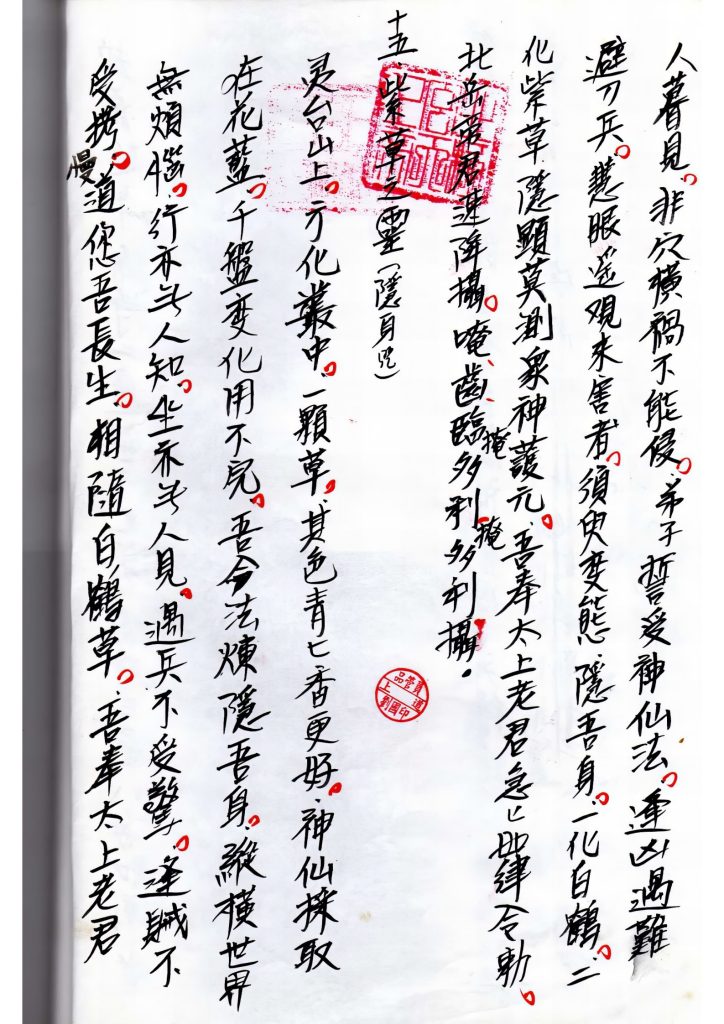 人暮見。非穴橫禍不能侵。弟子誓受神仙法。逢凶遇難
避刀兵。慧眼遥观来害者。須臾变態隱吾身。一化白鶴。二
化紫草隱顯莫測衆神護元。吾奉太上老君急匕如律令勅。
北岳帝君速降攝。唵齒臨多利多利攝。
掩
掩
十五、紫草之靈（隱身咒）
灵台山上。方化叢中。一顆草。其色青匕香更好。神仙採取
在花藍。千盤变化用不完。吾今法煉隱吾身。縱橫世界
無煩惱。行亦无人知。坐亦无人見。遇兵不受驚。逢贼不
受拷。道您吾長生。相隨白鶴草。吾奉太上老君
慢